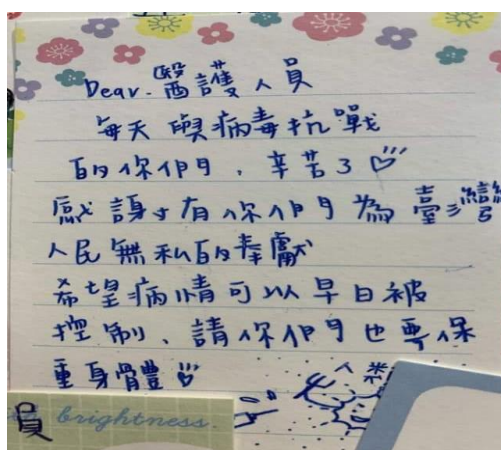 Dear. 醫護人員
每天與病毒抗戰
的你們、辛苦了
感謝有你們為臺灣
人民無私的奉獻
希望病情可以早日被
控制、請你們也要保
重身體
員 brightness.